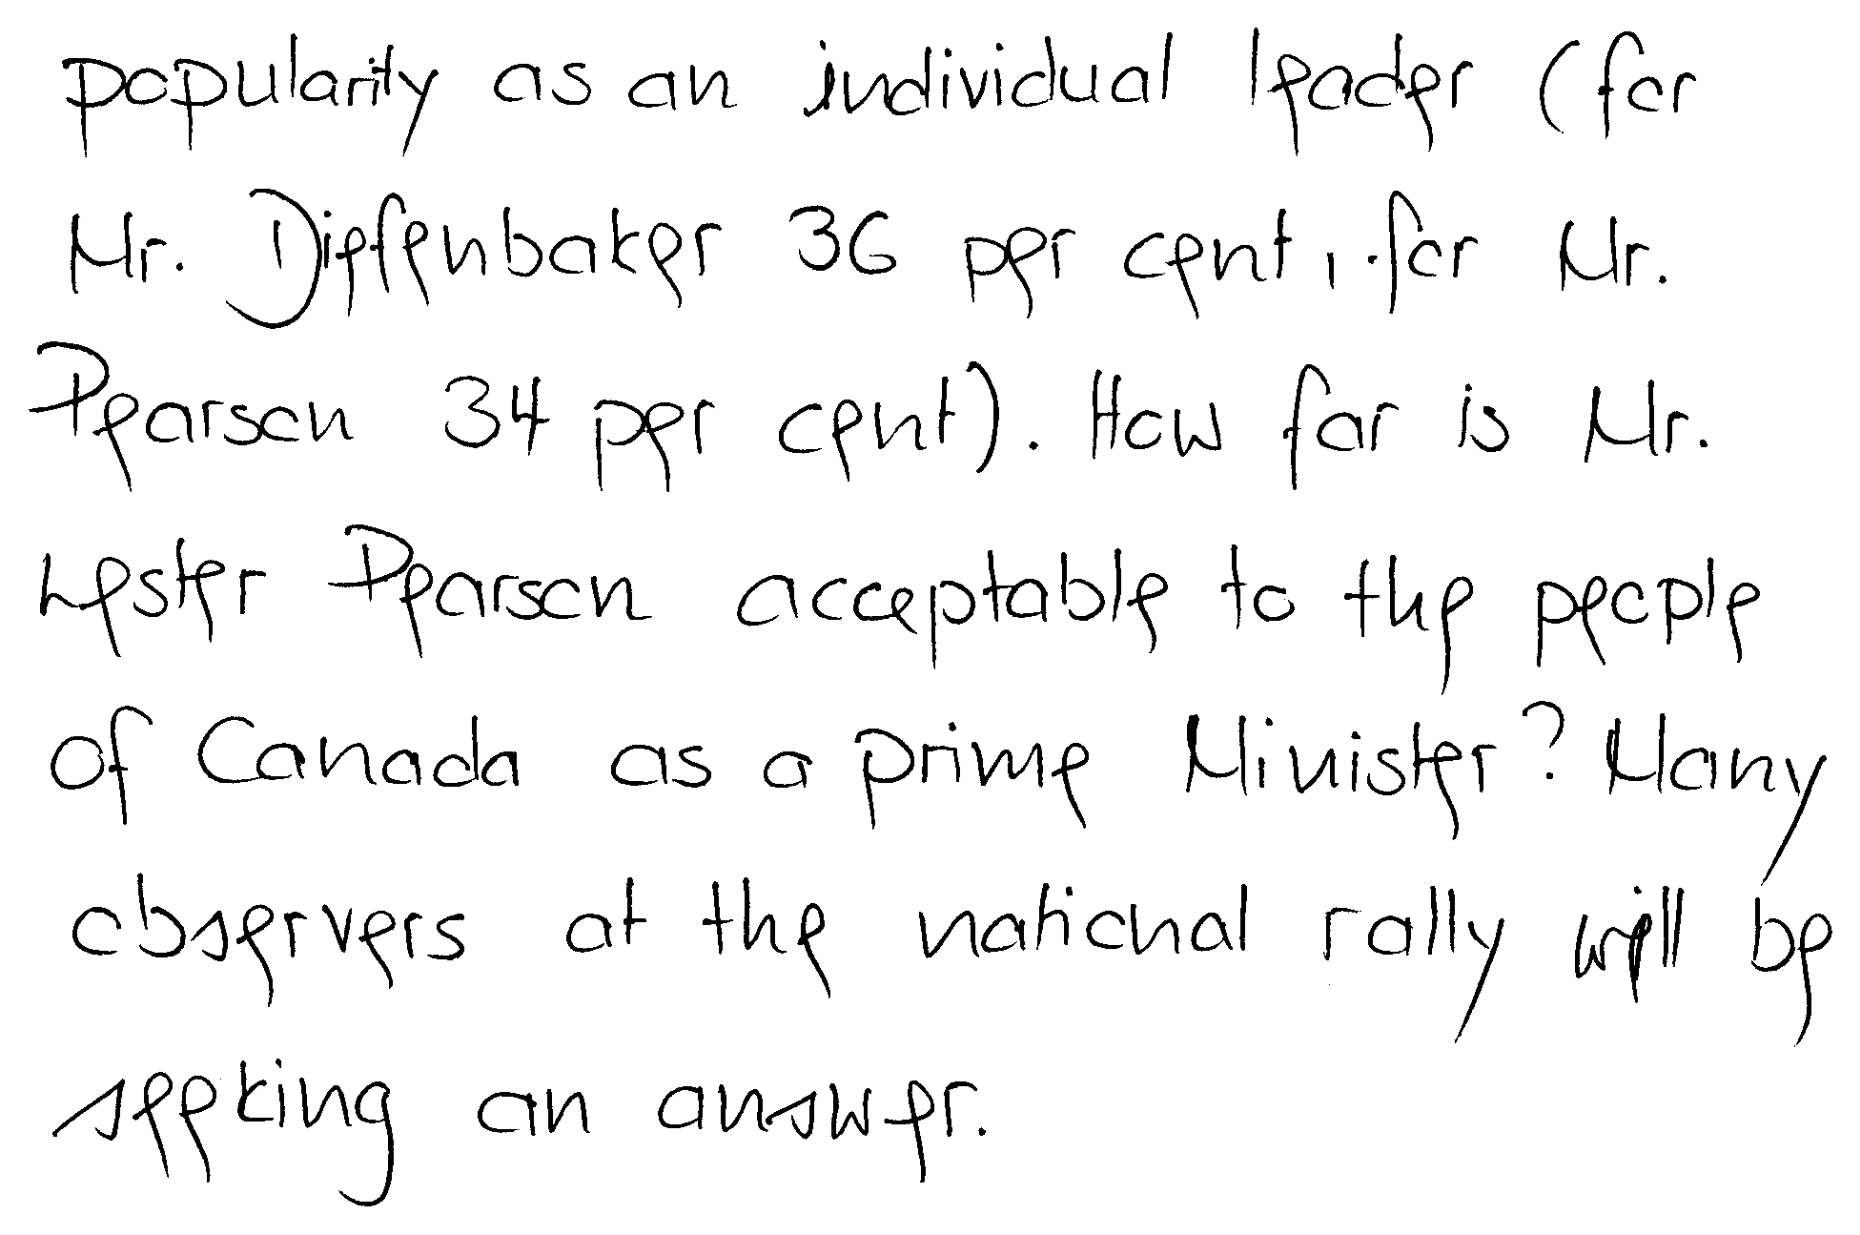 popularity as an individual leader (for
Mr. Diefenbaker 36 per cent, for Mr.
Pearson 34 per cent). How far is Mr.
Lester Pearson acceptable to the people
of Canada as a prime Minister? Many
observers at the national rally will be
seeking an answer.